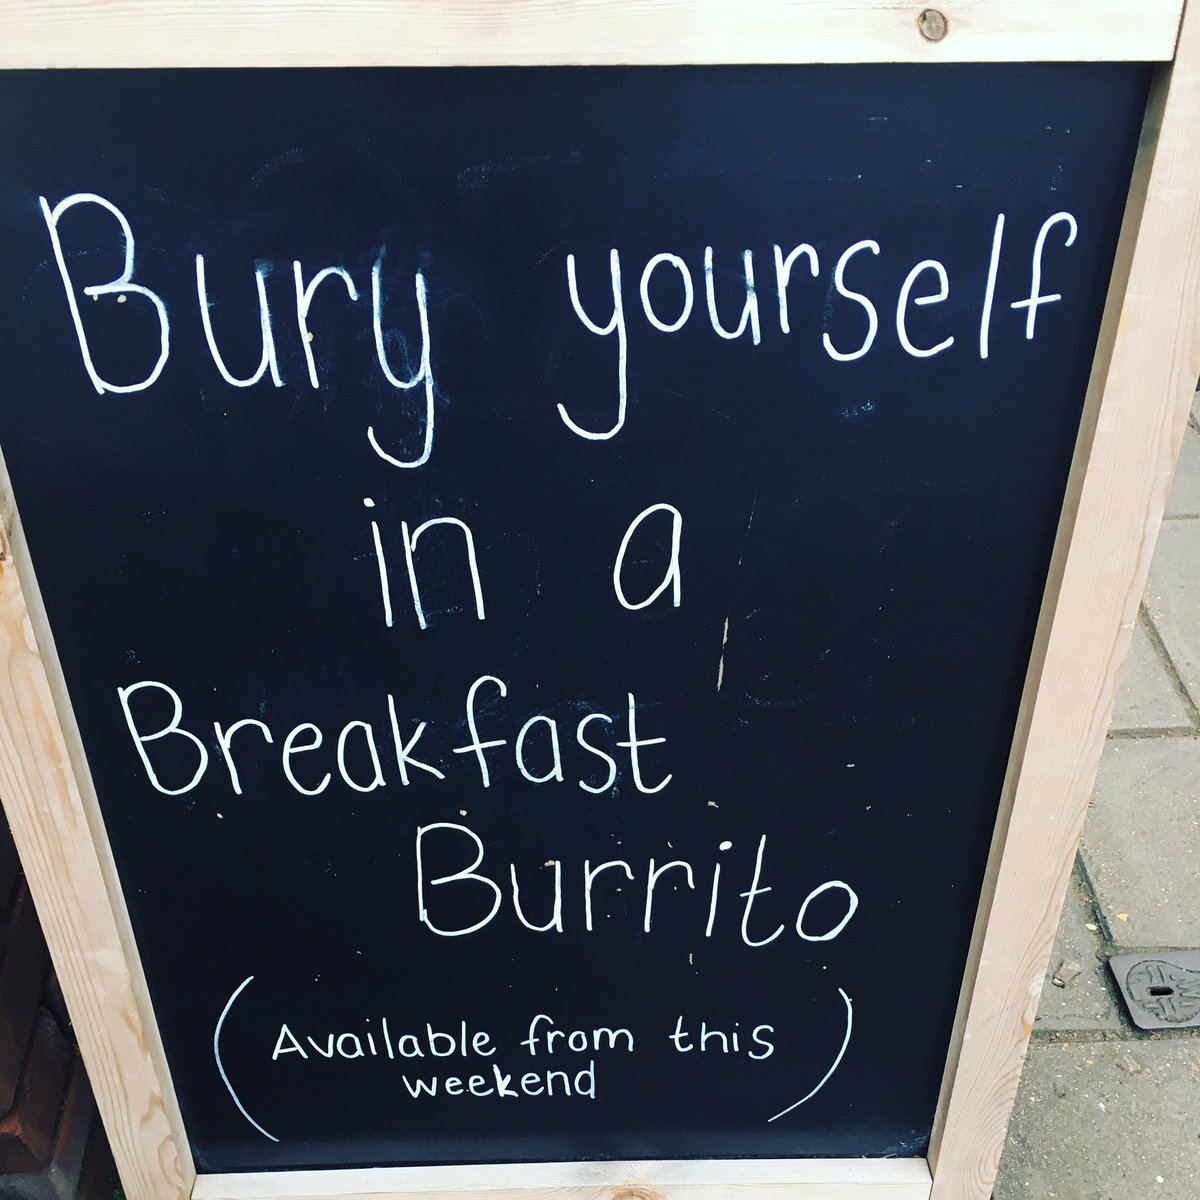 Bury yourself
in a
Breakfast
Burrito
(Available from this
weekend)